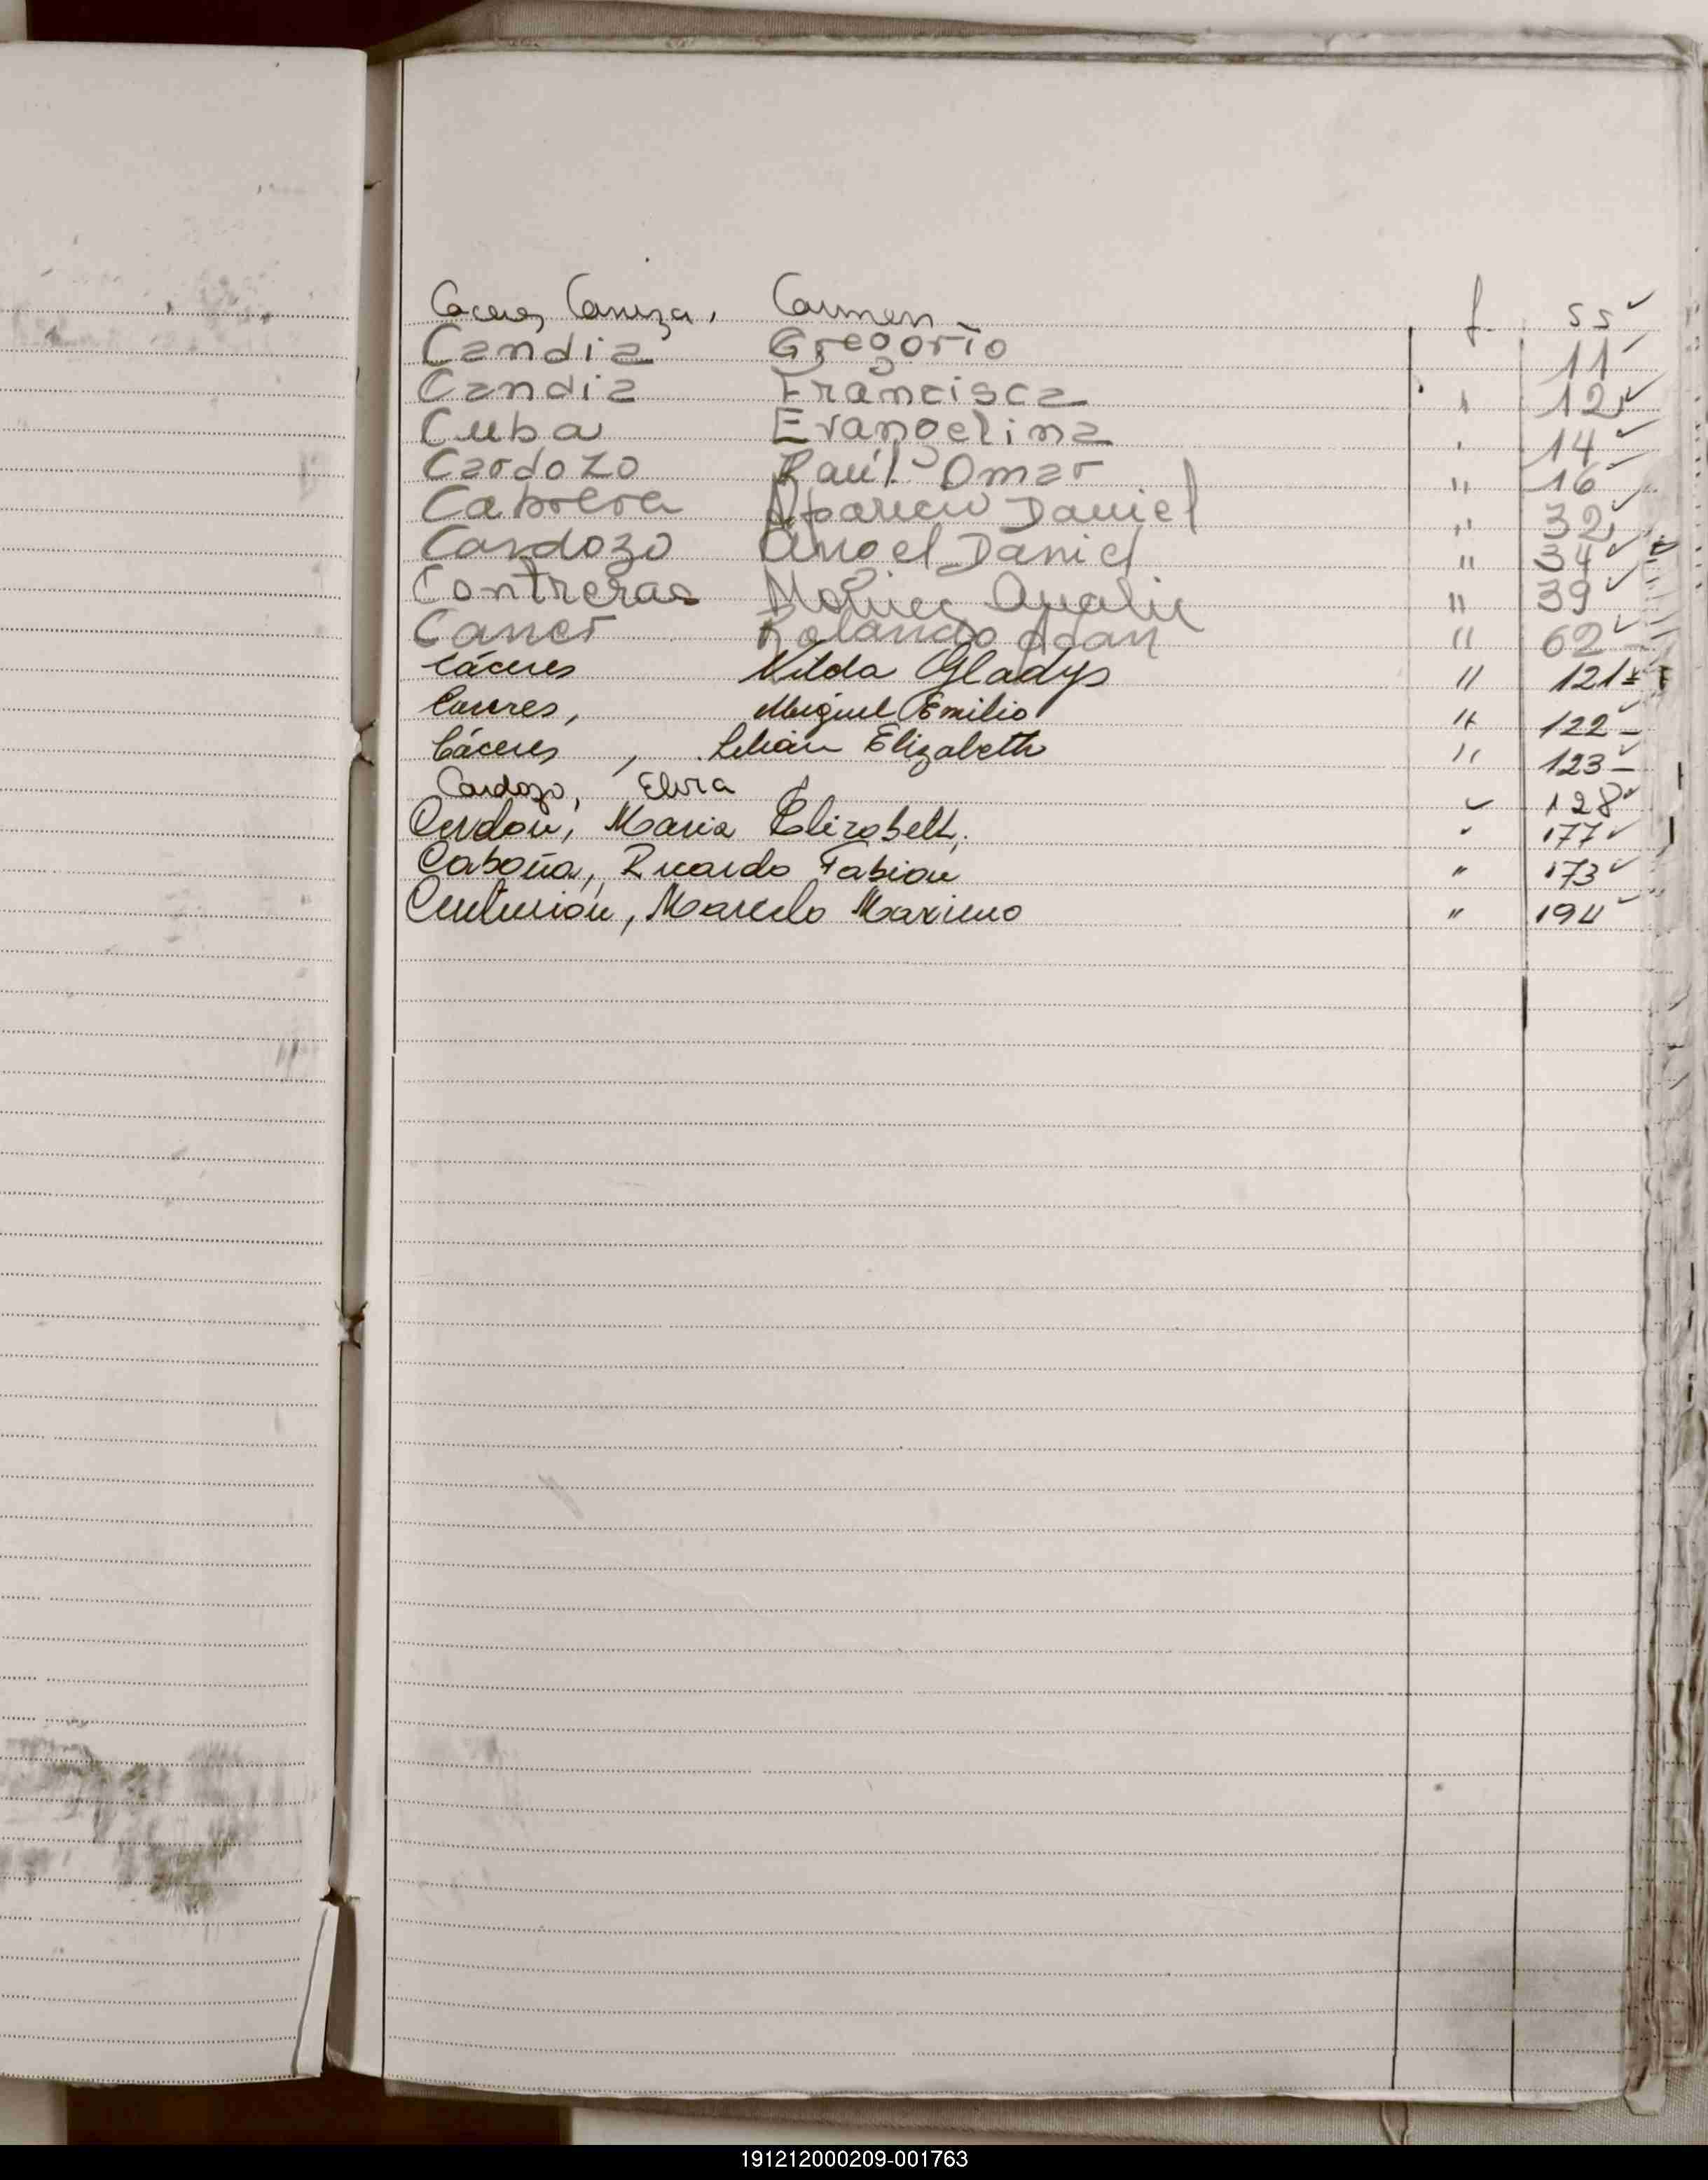 Caceres Caniza, Carmen f. 55
Candia Gregorio 11
Candia Francisca " 12
Cuba Evangelina " 14
Cardozo Raúl Omar " 16
Cabrera Aparicio Daniel " 32
Cardozo Angel Daniel " 34
Contreras " 39
Canet Rolando Adan " 62
Cáceres Nilda Gladys " 121
Caceres, Miguel Emilio " 122
Cáceres, Lilian Elizabeth " 123
Cardozo, Elvia " 128
Maria Elizabeth, " 177
Cabaña, Ricardo Fabian " 173
Centurión, Marcelo Maximo " 194
191212000209-001763